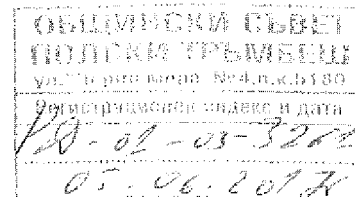 ОБЩИНСКИ СЪВЕТ
ПОЛСКИ ТРЪМБЕШ
ул. "Черно море" №4, п.к. 5180
Регистрационен индекс и дата
05.06.2017